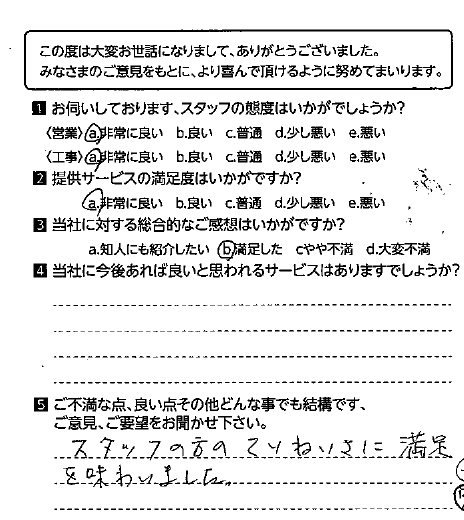 この度は大変お世話になりまして、ありがとうございました。
みなさまのご意見をもとに、より喜んで頂けるように努めてまいります。
1 お伺いしております、スタッフの態度はいかがでしょうか？
〈営業〉a.非常に良い b.良い c.普通 d.少し悪い e.悪い
〈工事〉a.非常に良い b.良い c.普通 d.少し悪い e.悪い
2 提供サービスの満足度はいかがですか？
a.非常に良い b.良い c.普通 d.少し悪い e.悪い
3 当社に対する総合的なご感想はいかがですか？
a.知人にも紹介したい b.満足した cやや不満 d.大変不満
4 当社に今後あれば良いと思われるサービスはありますでしょうか？
5 ご不満な点、良い点その他どんな事でも結構です、
ご意見、ご要望をお聞かせ下さい。
スタッフの方のていねいさに満足
を味わいました。